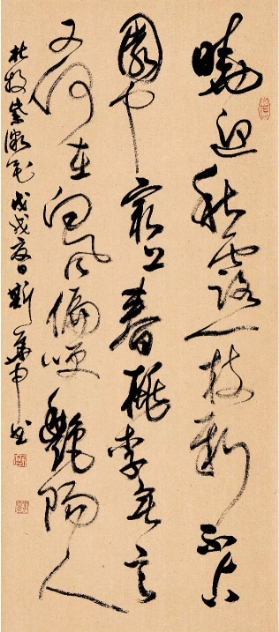 曉迎秋露一枝新不占
園中最上春桃李無言
又何在向風偏咲艷陽人
杜牧紫薇花戊戌夏日斯